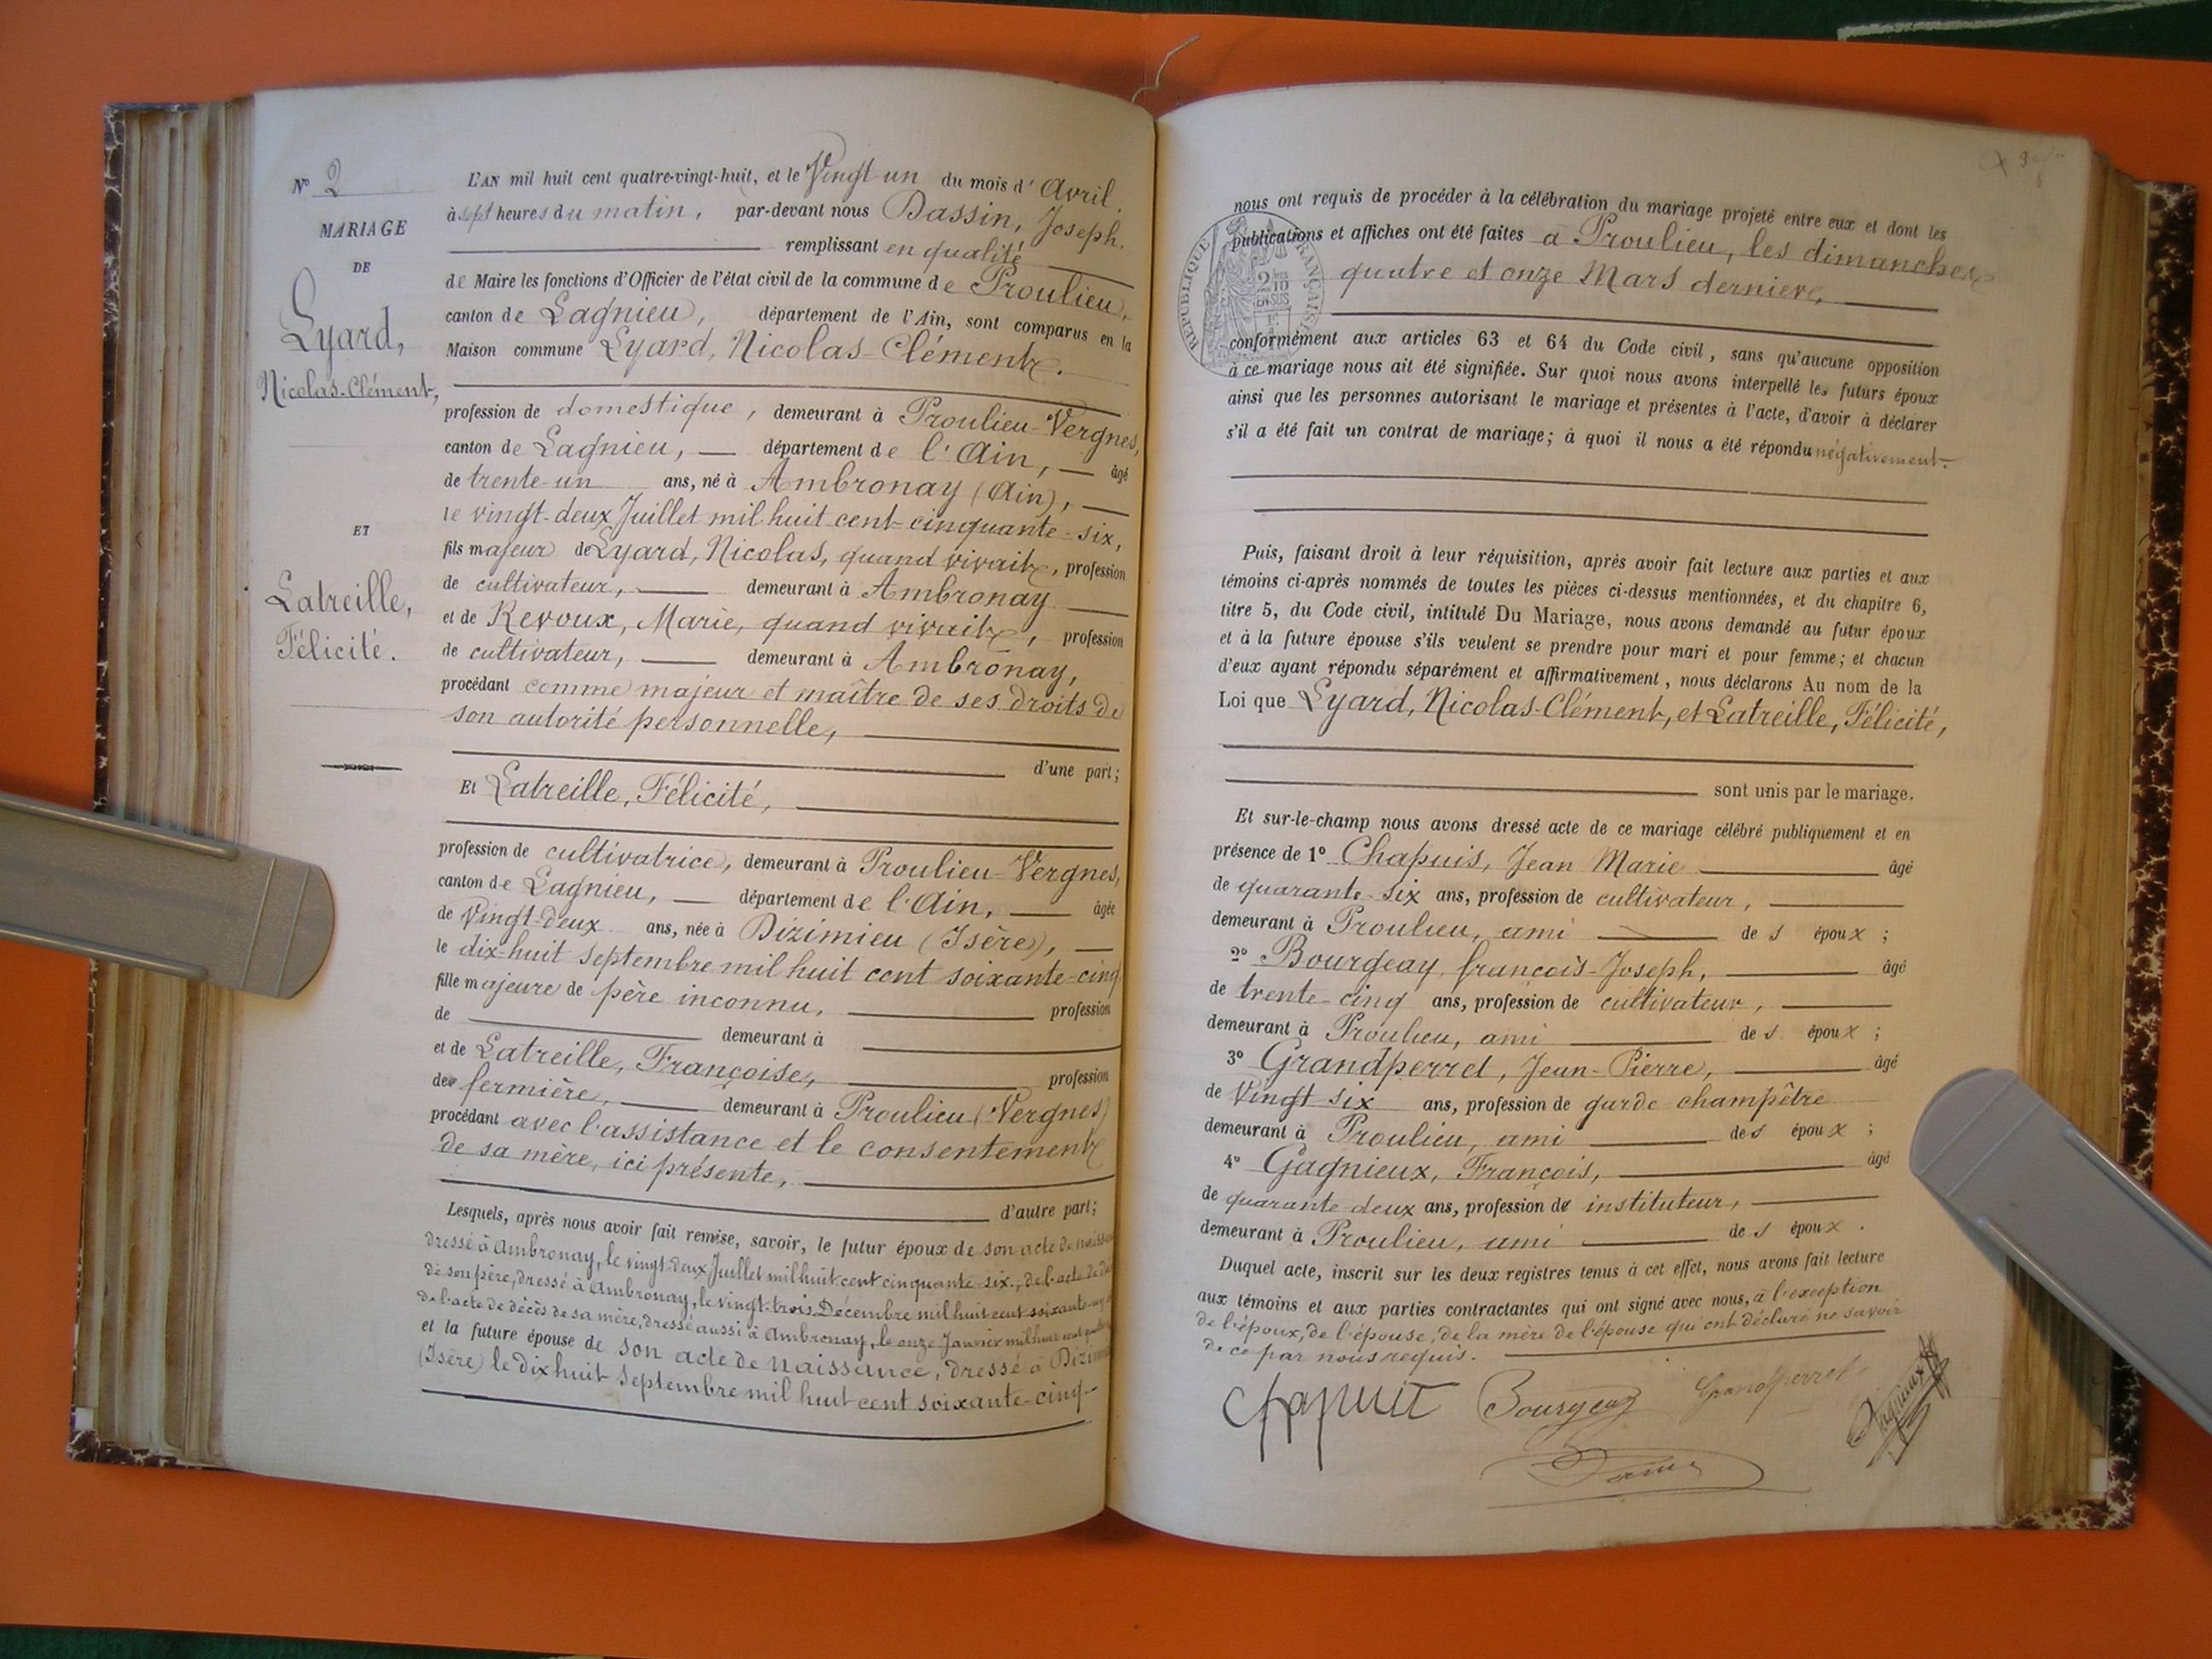 N° 2
MARIAGE
DE
Lyard,
Nicolas-Clément,
ET
Latreille,
Félicité.
L'AN mil huit cent quatre-vingt-huit, et le Vingt-un du mois d'Avril.
à sept heures du matin, par-devant nous Dassin, Joseph.
remplissant en qualité
de Maire les fonctions d'Officier de l'état civil de la commune de Proulieu,
canton de Lagnieu, département de l'Ain, sont comparus en la
Maison commune Lyard, Nicolas-Clément.
profession de domestique, demeurant à Proulieu-Vergnes,
canton de Lagnieu, département de l'Ain, âgé
de trente-un ans, né à Ambronay (Ain),
le vingt-deux Juillet mil huit cent-cinquante-six,
fils majeur de Lyard, Nicolas, quand vivait, profession
de cultivateur, demeurant à Ambronay
et de Revoux, Marie, quand vivait, profession
de cultivateur, demeurant à Ambronay,
procédant comme majeur et maître de ses droits de
son autorité personnelle,
d'une part;
Et Latreille, Félicité,
profession de cultivatrice, demeurant à Proulieu-Vergnes,
canton de Lagnieu, département de l'Ain, âgée
de Vingt-Deux ans, née à Dizimieu (Isère),
le dix-huit Septembre mil huit cent soixante-cinq
fille majeure de père inconnu, profession
de demeurant à
et de Latreille, Françoise, profession
de fermière, demeurant à Proulieu (Vergnes)
procédant avec l'assistance et le consentement
de sa mère, ici présente,
d'autre part;
Lesquels, après nous avoir fait remise, savoir, le futur époux de son acte de
dressé à Ambronay, le vingt-deux Juillet mil huit cent cinquante-six, de l'acte de
de son père, dressé à Ambronay, le vingt-trois Décembre mil huit cent soixante
de l'acte de décès de sa mère, dressé aussi à Ambronay, le onze Janvier mil huit cent
et la future épouse de son acte de naissance, dressé à
(Isère) le dix huit Septembre mil huit cent soixante-cinq
nous ont requis de procéder à la célébration du mariage projeté entre eux et dont les
publications et affiches ont été faites a Proulieu, les dimanches
quatre et onze Mars derniers,
RÉPUBLIQUE FRANÇAISE
2 10
EN SUS
conformément aux articles 63 et 64 du Code civil, sans qu'aucune opposition
à ce mariage nous ait été signifiée. Sur quoi nous avons interpellé les futurs époux
ainsi que les personnes autorisant le mariage et présentes à l'acte, d'avoir à déclarer
s'il a été fait un contrat de mariage; à quoi il nous a été répondu négativement.
Puis, faisant droit à leur réquisition, après avoir fait lecture aux parties et aux
témoins ci-après nommés de toutes les pièces ci-dessus mentionnées, et du chapitre 6,
titre 5, du Code civil, intitulé Du Mariage, nous avons demandé au futur époux
et à la future épouse s'ils veulent se prendre pour mari et pour femme; et chacun
d'eux ayant répondu séparément et affirmativement, nous déclarons Au nom de la
Loi que Lyard, Nicolas-Clément, et Latreille, Félicité,
sont unis par le mariage.
Et sur-le-champ nous avons dressé acte de ce mariage célébré publiquement et en
présence de 1° Chapuis, Jean Marie âgé
de quarante-six ans, profession de cultivateur,
demeurant à Proulieu, ami des époux;
2° Bourgeay, françois-Joseph, âgé
de trente-cinq ans, profession de cultivateur,
demeurant à Proulieu, ami des époux;
3° Grandperret, Jean-Pierre, âgé
de Vingt six ans, profession de garde champêtre
demeurant à Proulieu, ami des époux;
4° Gagnieux, François, âgé
de quarante-deux ans, profession de instituteur,
demeurant à Proulieu, ami des époux.
Duquel acte, inscrit sur les deux registres tenus à cet effet, nous avons fait lecture
aux témoins et aux parties contractantes qui ont signé avec nous, à l'exception
de l'époux, de l'épouse, de la mère de l'épouse qui ont déclaré ne savoir
de ce par nous requis.
Chapuit Bourgeay Grandperret Gagnieux